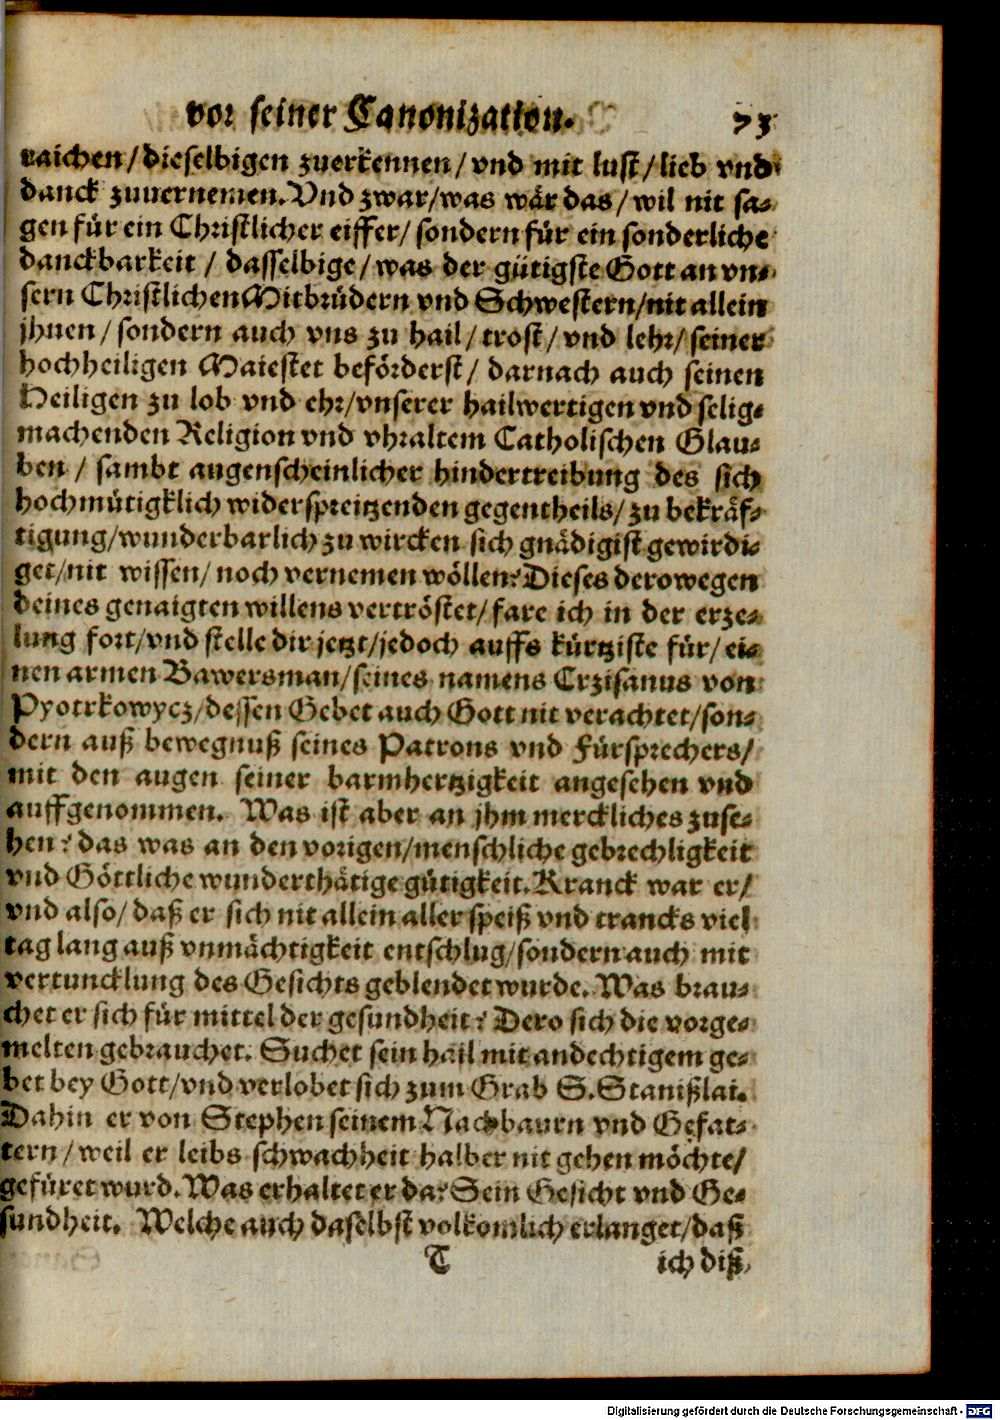 vor seiner Canonization. 73
raichen/dieselbigen zuerkennen/vnd mit lust/lieb vnd
danck zuuernemen. Vnd zwar/was wär das/wil nit sa-
gen für ein Christlicher eiffer/sondern für ein sonderliche
danckbarkeit/dasselbige/was der gütigste Gott an vn-
sern Christlichen Mitbrüdern vnd Schwestern/nit allein
jhnen/sondern auch vns zu hail/trost/vnd lehr/seiner
hochheiligen Maiestet beförderst/darnach auch seinen
Heiligen zu lob vnd ehr/vnserer hailwertigen vnd selig-
machenden Religion vnd vhraltem Catholischen Glau-
ben/sambt augenscheinlicher hindertreibung des sich
hochmütigklich widerspreitzenden gegentheils/zu bekräf-
tigung/wunderbarlich zu wircken sich gnädigist gewirdi-
get/nit wissen/noch vernemen wöllen? Dieses derowegen
deines genaigten willens vertröstet/fare ich in der erze-
lung fort/vnd stelle dir jetzt/jedoch auffs kürtziste für/ei-
nen armen Bawersman/seines namens Crzisanus von
Pyotrkowycz/dessen Gebet auch Gott nit verachtet/son-
dern auß bewegnuß seines Patrons vnd Fürsprechers/
mit den augen seiner barmhertzigkeit angesehen vnd
auffgenommen. Was ist aber an jhm merckliches zuse-
hen? das was an den vorigen/menschliche gebrechligkeit
vnd Göttliche wunderthätige gütigkeit. Kranck war er/
vnd also/daß er sich nit allein aller speiß vnd trancks viel
tag lang auß vnmächtigkeit entschlug/sondern auch mit
vertuncklung des Gesichts geblendet wurde. Was brau-
chet er sich für mittel der gesundheit? Dero sich die vorge-
melten gebrauchet. Suchet sein hail mit andechtigem ge-
bet bey Gott/vnd verlobet sich zum Grab S. Stanißlai.
Dahin er von Stephen seinem Nachbaurn vnd Gefat-
tern/weil er leibs schwachheit halber nit gehen möchte/
gefüret wurd. Was erhaltet er da? Sein Gesicht vnd Ge-
sundheit. Welche auch daselbst volkomlich erlanget/daß
T ich diß
Digitalisierung gefördert durch die Deutsche Forschungsgemeinschaft - DFG